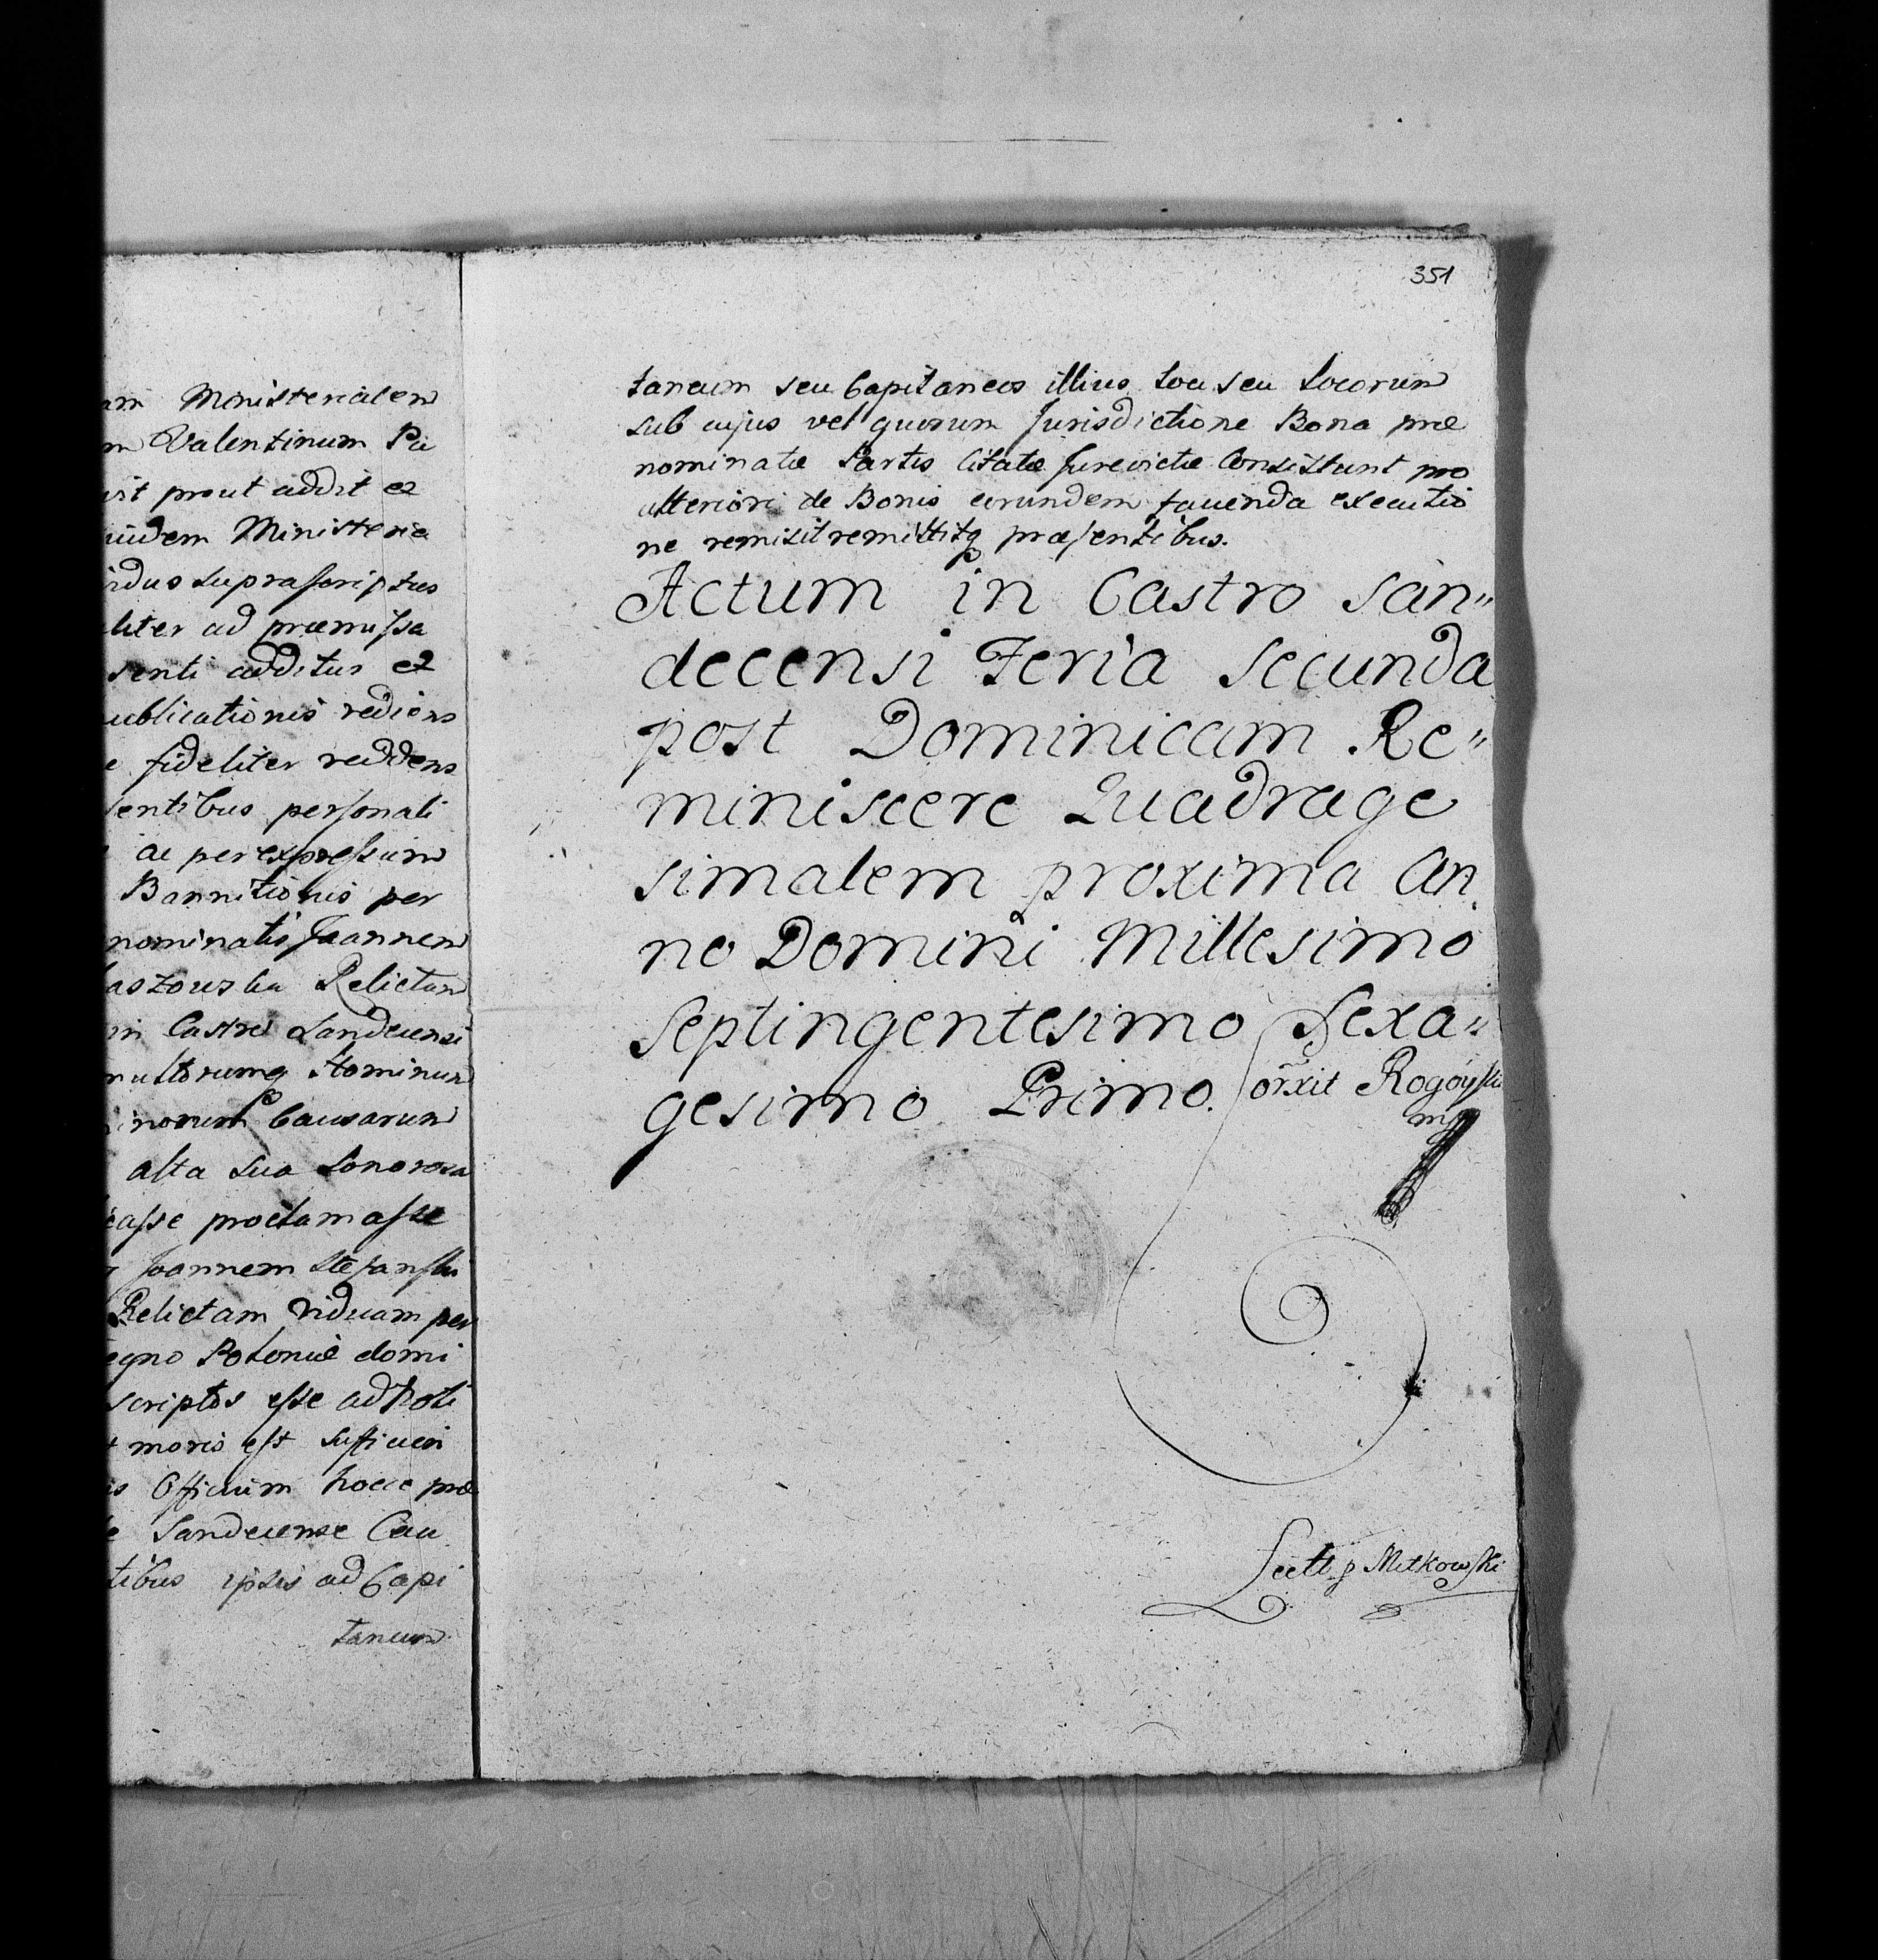 Ministerialem
Valentinum Pa
prout addit et
Ministeria
suprascriptus
ad præmissa
additus et
publicationis rediens
fideliter reddens
personali
ac per expressum
Bannitionis per
nominatis Joannem
Relictam
in Castro Sandecensi
multorumq Hominum
Causarum
alta sua sonorosa
proclamasse
Joannem Stefanski
Relictam Viduam per
Poloniæ domi
scriptos esse ad Noti
moris est
Officium hocce præ
Sandecense Cau
ipsis ad Capi
taneum
351
taneum seu Capitaneos illius Loci seu Locorum
sub cujus vel quorum Jurisdictione Bona præ
nominatæ Partis Citatæ Jurevictæ Consistunt pro
ulteriori de Bonis eorundem favenda executio
ne remisit remittitq præsentibus.
Actum in Castro San"
decensi Feria Secunda
post Dominicam Re"
miniscere Quadrage
simalem proxima An
no Domini Millesimo
Septingentesimo Sexa"
gesimo Primo.
Rogoyski
mp
Lectt p Mitkowski